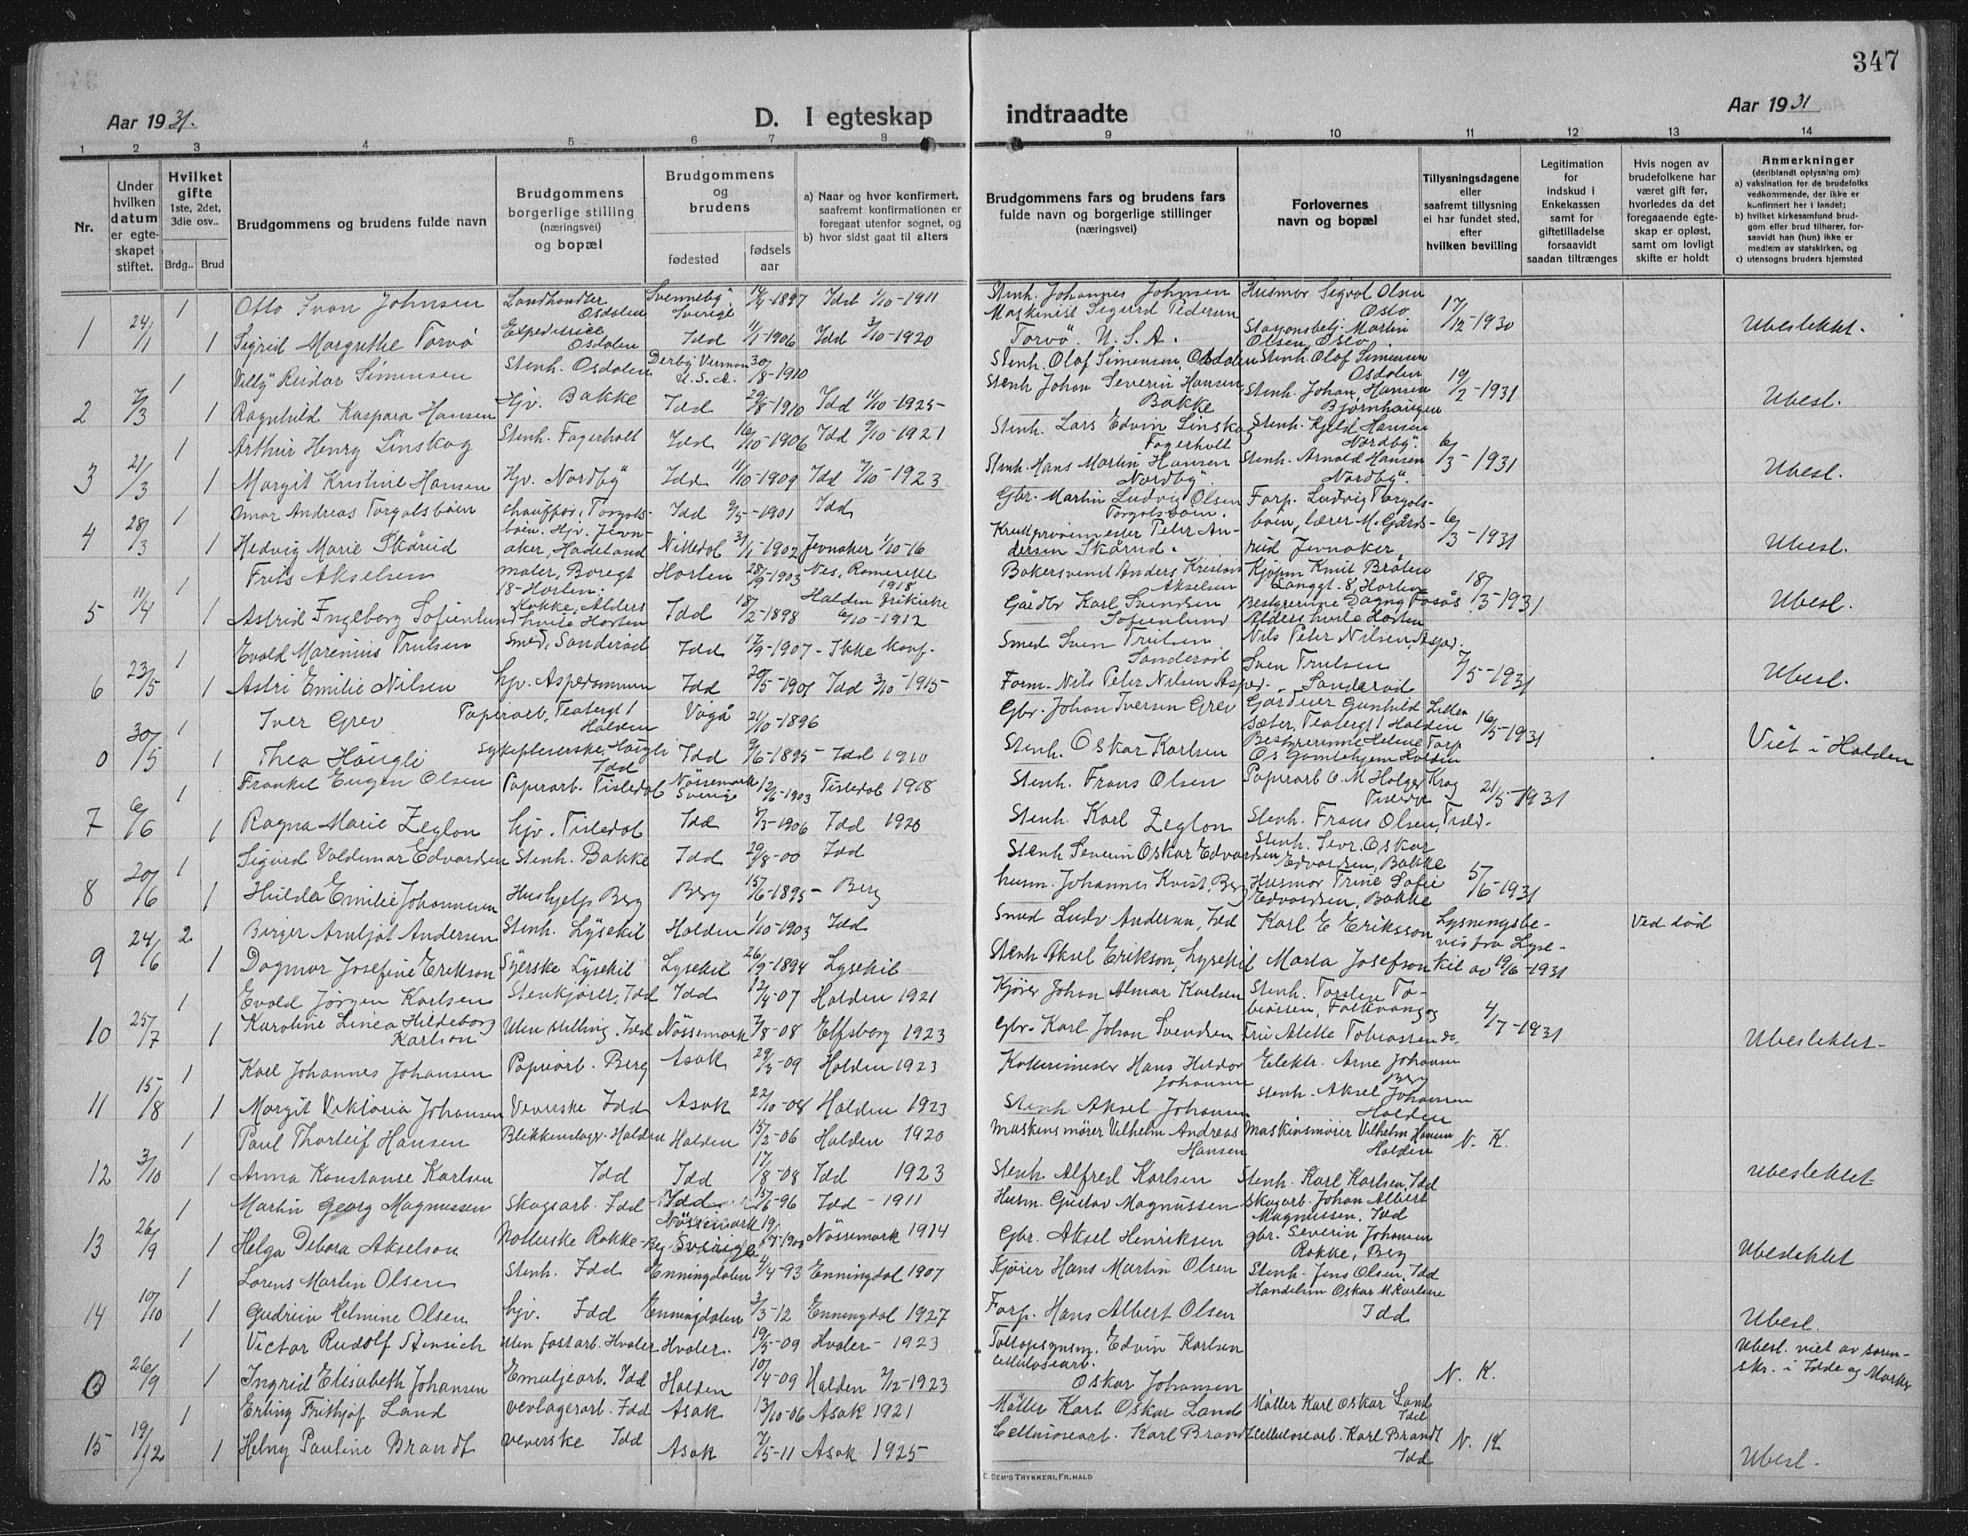 347
Aar 1931.
D. I egteskap
indtraadte
Aar 1931
1 2 3 4 5 6 7 8 9 10 11 12 13 14
Nr.
Under hvilken datum er egteskapet stiftet.
Hvilket gifte 1ste, 2det, 3die osv..
Brdg..
Brud
Brudgommens og brudens fulde navn
Brudgommens borgerlige stilling (næringsvei) og bopæl
Brudgommens og brudens
fødested
fødsels aar
a) Naar og hvor konfirmert, saafremt konfirmationen er foregaat utenfor sognet, og
b) hvor sidst gaat til alters
Brudgommens fars og brudens fars fulde navn og borgerlige stillinger (næringsvei)
Forlovernes navn og bopæl
Tillysningsdagene eller saafremt tillysning ei har fundet sted, efter hvilken bevilling
Legitimation for indskud i Enkekassen samt for giftetilladelse forsaavidt saadan tiltrænges
Hvis nogen av brudefolkene har været gift før, hvorledes da det foregaaende egteskap er opløst, samt om lovligt skifte er holdt
Anmerkninger
(deriblandt oplysning om)
a) vaksination for de brudefolks vedkommende, der ikke er konfirmert her i landet;
b) hvilket kirkesamfund brudgom eller brud tilhører, forsaavidt han (hun) ikke er medlem av statskirken, og
c) utensogns bruders hjemsted
1 24/1 1 Otto Ivan Johnsen Landhandler Osdalen Svenneby Sverige 14/4-1897 Idd 1/10-1911 Stenh. Johannes Johnsen Husmor Sigvol Olsen Oslo 17/12-1930
1 Sigrid Margrethe Torvø Expeditrice Osdalen Idd 11/1-1906 Idd 3/10-1920 Maskinist Sigurd Pedersen Torvø. U.S.A. Stasjonsbetj. Martin Olsen, Oslo. Ubeslektet.
2 7/3 1 Villy Reidar Simensen Stenh. Osdalen Derby U.S.A. 30/8-1910 Stenh. Olaf Simensen, Osdalen Stenh. Olaf Simensen Osdalen 19/2-1931
1 Ragnhild Kaspara Hansen Hjv. Bakke Idd 29/8-1910 Idd 11/10-1925 Stenh Johan Severin Hansen Bakke Stenh. Johan Hansen Bjørnhaugen Ubesl.
3 21/3 1 Arthur Henry Linskog Stenh. Fagerholt Idd 16/10-1906 Idd 9/10-1921 Stenh. Lars Edvin Linskog Fagerholt Stenh. Kjeld Hansen Nordby. 6/3-1931
1 Margit Kristine Hansen Hjv. Nordby Idd 11/10-1909 Idd 7/10-1923 Stenh. Hans Martin Hansen Nordby. Stenh. Arnold Hansen Nordby. Ubesl.
4 28/3 1 Omar Andreas Torgalsbøen chauffør, Torgalsbøen. Idd 9/5-1901 Idd Gbr. Martin Ludvig Olsen Torgalsbøen. Forp. Ludvig Torgalsbøen, lærer M. Gårdsrud Jevnaker 6/3-1931
1 Hedvig Marie Skårud Hjv. Jevnaker, Hadeland Nittedal 31/1-1902 Jevnaker 1/10-16 Peter Andersen Skårud. Ubesl.
5 11/4 1 Frits Akselsen maler, Boregt 18-Horten. Horten 28/9-1903 Nes, Romerike 1918 Bakersvend Anders Kristian Akselsen Kjøpm Knut Bråten Langgt. 8, Horten 18/3-1931
1 Astrid Ingeborg Sofienlund Kokke, Aldershvile Horten Idd 18/2-1898 Halden frikirke 6/10-1912 Gårdbr Karl Svendsen Sofienlund Bestyrerinne Dagny Fosås Aldershvile Horten Ubesl.
6 23/5 1 Evald Marenius Trulsen Smed, Sanderød Idd 17/9-1907 - Ikke konf. Smed Sven Trulsen Sanderød Nils Peter Nilsen, Asped. 7/5-1931
1 Astri Emilie Nilsen hjv. Aspedammen Idd 20/5-1901 Idd 3/10-1915 Form. Nils Peter Nilsen Asped. Sven Trulsen Sanderød Ubesl.
0 30/5 1 Iver Grev Papirarb, Teatergt 1 Halden Vågå 21/10-1896 Gbr. Johan Iversen Grev Gunhild Lillesæter, Teatergt 1 Halden 16/5-1931
1 Thea Haugli Sykepleierske, Haugli Idd Idd 9/6-1895 - Idd 1910 Stenh. Oskar Karlsen Bestyrerinne Helene Torp Os Gamlehjem Halden Viet i Halden
7 6/6 1 Frankel Eugen Olsen Papirarb. Tistedal Nössemark Sverige 12/6-1903 Tistedal 1918 Stenh. Frans Olsen Papirarb O. M Holger Krog Tistedal 21/5-1931
1 Ragna Marie Zeglon hjv. Tistedal Idd 7/3-1906 Idd 1920 Stenh. Karl Zeglon Stenh. Frans Olsen, Tisted.
8 20/6 1 Sigurd Valdemar Edvardsen Stenh. Bakke Idd 29/8-00 Idd Stenh Severin Oskar Edvardsen Stenh. Sevr. Oskar Edvardsen, Bakke 5/6-1931
1 Hulda Emilie Johannesen Hushjelp Berg Berg 15/6-1895 - Berg husm. Johannes Kvist, Berg Husmor Trine Sofie Edvardsen, Bakke
9 24/6 2 Birger Arnljot Andersen Stenh. Lysekil Halden 1/10-1903 Idd Smed Ludv Andersen, Idd Karl E Eriksson Lysningsbevis fra Lysekil av 19/6-1931 Ved död
1 Dagmar Josefine Erikson Syerske Lysekil Lysekil 26/9-1894 Lysekil Stenh Aksel Erikson, Lysekil Marta Josefson
10 25/7 1 Evald Jørgen Karlsen Stenkjører, Idd Idd 12/4-07 Halden 1921 Kjører Johan Almar Karlsen Stenh. Torsten Tobiassen, Folkvang og 4/7-1931
1 Karoline Linea Hildeborg Karlson Uten stilling. Idd Nössemark 7/8-08 Elfsborg 1923 Gbr. Karl Johan Svendsen Fru Alette Tobiassen do. Ubeslektet-
11 15/8 1 Karl Johannes Johansen Papirarb. Berg Asak 29/3-09 Halden 1923 Hans Heldor Johansen Elektr. Arne Johansen Berg
1 Margit Viktoria Johansen Veverske Idd Asak 22/10-08 Halden 1923 Stenh. Aksel Johansen Stenh. Aksel Johansen Halden
12 3/10 1 Paul Thorleif Hansen Blikkenslager. Halden Halden 15/2-06 Halden 1920 Maskinsmører Vilhelm Andreas Hansen Maskinsmører Vilhelm Hansen Halden N. K.
1 Anna Konstanse Karlsen Idd Idd 17/8-08 Idd 1923 Stenh. Alfred Karlsen Stenh. Karl Karlsen, Idd Ubeslektet
13 26/9 1 Martin Georg Magnussen Skogsarb. Idd Idd 15/6-96 Idd - 1911 Husm. Gustav Magnussen Skogarb. Johan Albert Magnussen. Idd
1 Helga Debora Akselson Rokke - Berg Nössemark Sverige Nössemark 1914 Gbr. Aksel Henriksen gbr. Severin Johansen Rokke, Berg Ubeslektet
14 10/10 1 Lorens Martin Olsen Stenh. Idd Enningdalen 4/4-93 Enningdal 1907 Kjører Hans Martin Olsen Stenh. Jens Olsen, Idd
1 Gudrun Helmine Olsen hjv. Idd Enningdalen 3/3-12 Enningdal 1927 Forp. Hans Albert Olsen Handelsm Oskar M Karlsene Idd Ubesl.
0 26/9 1 Victor Rudolf Stensich Uten fast arb. Hvaler Hvaler. 19/5-09 Hvaler - 1923 Edvin Karlsen Ubesl. viet av sorenskr. i Idde og Marker
1 Ingrid Elisabeth Johansen Emaljearb. Idd Halden 10/4-09 Halden 2/12-1923 Cellulosearb. Oskar Johansen N. K.
15 19/12 1 Erling Frithjof Land vevlagerarb. Idd Asak 13/10-06 Asak 1921 Møller Karl Oskar Land Møller Karl Oskar Land Idd
1 Helny Pauline Brandt veverske Idd Asak 7/5-11 Asak 1925 Cellulosearb. Karl Brandt Cellulosearb. Karl Brandt Idd N. K Ubesl.
E. SEM'S TRYKKERI, FR.HALD